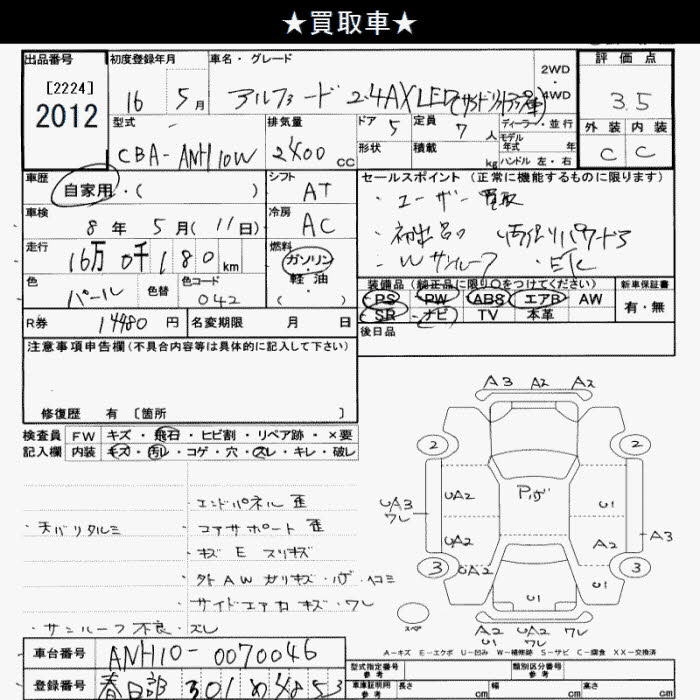 ★買取車★
出品番号 初度登録年月 車名・グレード 2WD・4WD 評価点
[2224]
2012
16 5月 2.4AX 3.5
外装 内装
C C
型式 排気量 ドア 定員 ディーラー・並行
CBA-ANH10W 2400cc 5 7人 モデル年式 年
形状 積載 kg ハンドル 左・右
車歴 シフト セールスポイント(正常に機能するものに限ります)
自家用・( ) AT ・ユーザー買取
車検 冷房
8年 5月(11日) AC
走行 燃料
16万0千180km ガソリン・軽油・( ) ・Wサンルーフ ・ETC
色 色替 色コード
パール 042
装備品(純正品に限り○をつけてください) 新車保証書
PS PW ABS エアB AW 有・無
SR ナビ TV 本革
R券 14480円 名変期限 月 日 後日品
注意事項申告欄(不具合内容等は具体的に記入して下さい)
修復歴 有 [箇所 ]
検査員 FW キズ・飛石・ヒビ割・リペア跡・×要
記入欄 内装 キズ・汚レ・コゲ・穴・スレ・キレ・破レ
・エンドパネル 歪
・天バリタルミ ・コアサポート 歪
・キズ E スリキズ
・外AWガリキズ・ハゲ・ヘコミ
・サイドエアロキズ・ワレ
・サンルーフ不良・ズレ
A3 A2 A2
2 2
Pハゲ
UA3 ワレ UA2 U1
UA2 A2 A3
3 UA2 3
U1
スペア
A2 UA2 ワレ
U1 ワレ
A-キズ E-エクボ U-凹み W-補修跡 S-サビ C-腐食 XX-交換済
車台番号 ANH10-0070046
型式指定番号 参考 類別区分番号 参考
登録番号 春日部 301 め 4853
車庫証明用 参考 長さ cm 幅 cm 高さ cm